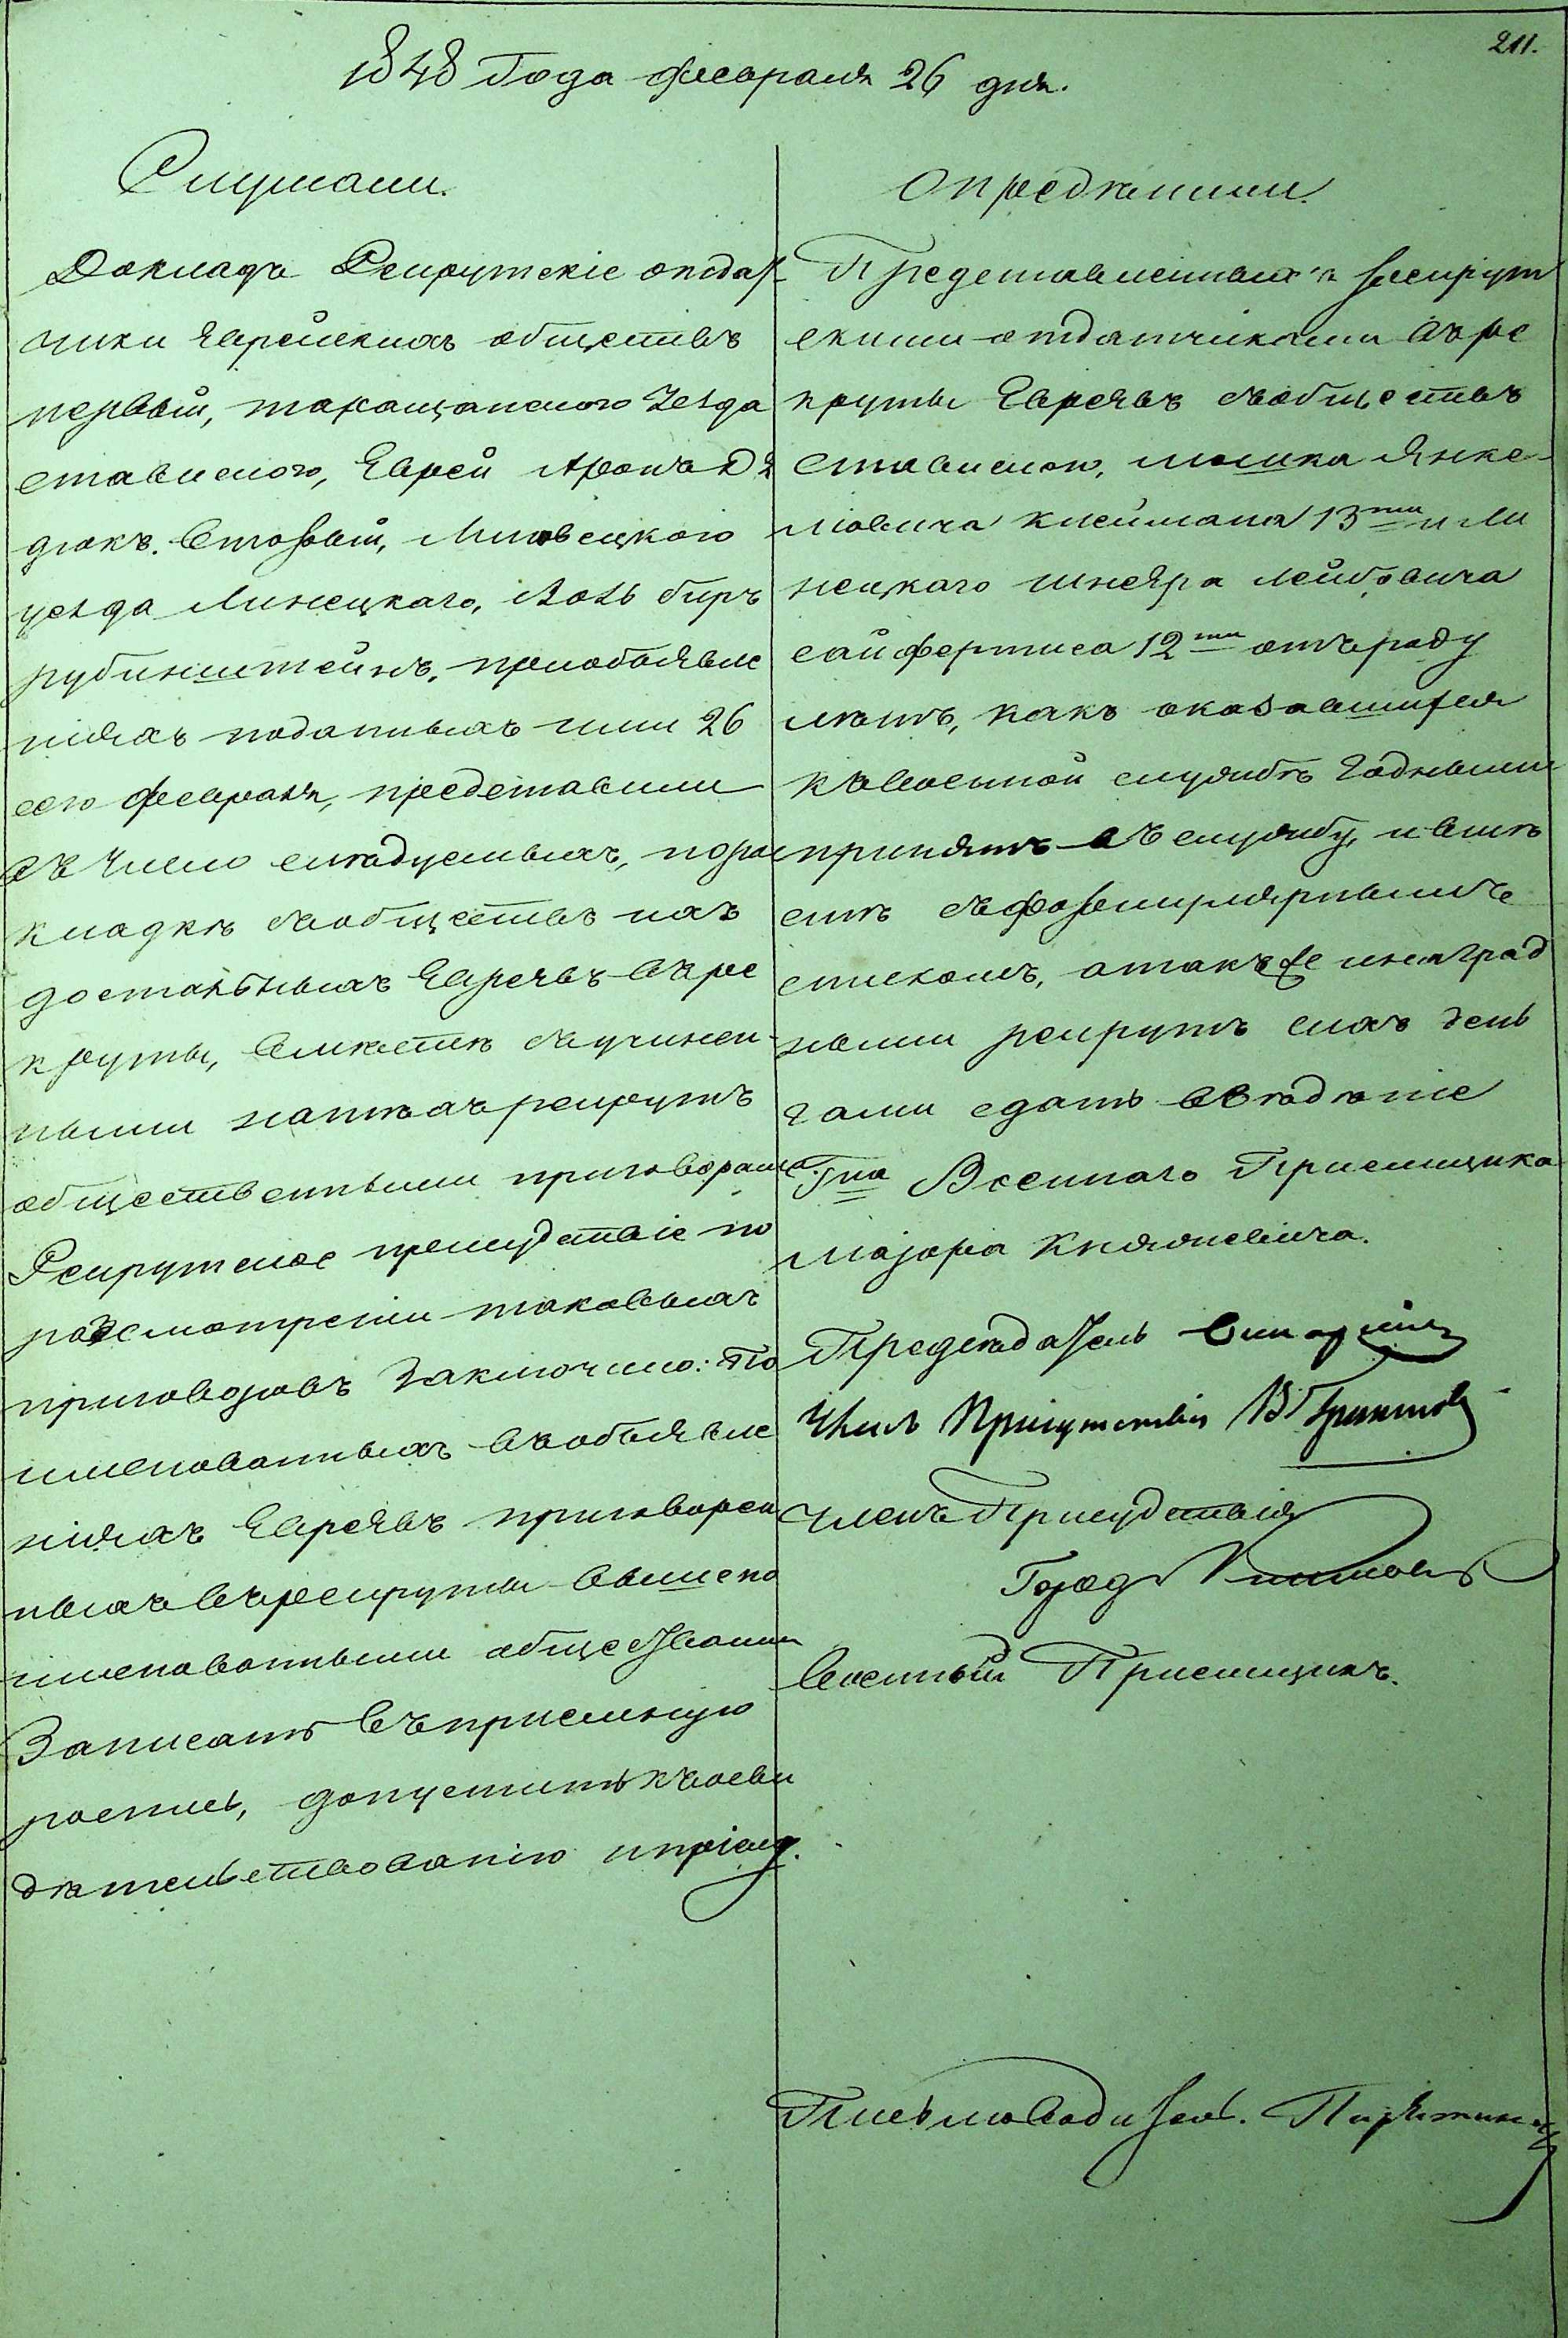 211.
1848 Года февраля 26 дня.
Слушали.
Докладъ Рекрутскіе отдат
чики Еврейскихъ обществъ
первый, таращанского Уезда
ставиского, Еврей Аронъ Дя
дюкъ. Вторый, Липовецкого
уезда Линецкаго, Іось беръ
рубинштейнъ, приобъявле
ніяхъ поданныхъ ими 26
сего февраля, представили
въ число следуемыхъ, порас
кладке съобществъ ихъ
достальныхъ Евреевъ въре
круты, вместе съучинен
ными натехърекрутъ
общественными приговорами
Рекрутское присудствіе по
разсмотреніи таковыхъ
приговоровъ Заключило: По
именованныхъ въобъявле
ніяхъ Евреевъ приговорен
ныхъ върекруты вышепо
именованными обществами
Записать въпріемную
роспись, допустить къосви
детельствованію ипріему.
Определили.
Представленныхъ рекрут
скими отдатчиками въре
круты Евреевъ съобществъ
ставиского, мошка Янке
ліовича клеймана 13ти и Ли
нецкаго шнеяра лейбовича
сайфертиса 12ти отъроду
летъ, какъ оказавшихся
къвоенной службе годными
принять въ службу, ивнесть
съформулярнымъ
спискомъ, атакъже инаград
ными рекрутъ сихъ день
гами сдать введеніе
Гна Военнаго Приемщика
Маіора Княжевича.
Председатель
Членъ Присутствія
Членъ Присудствія
Город
Военный Приемщикъ.
Письмоводитель.